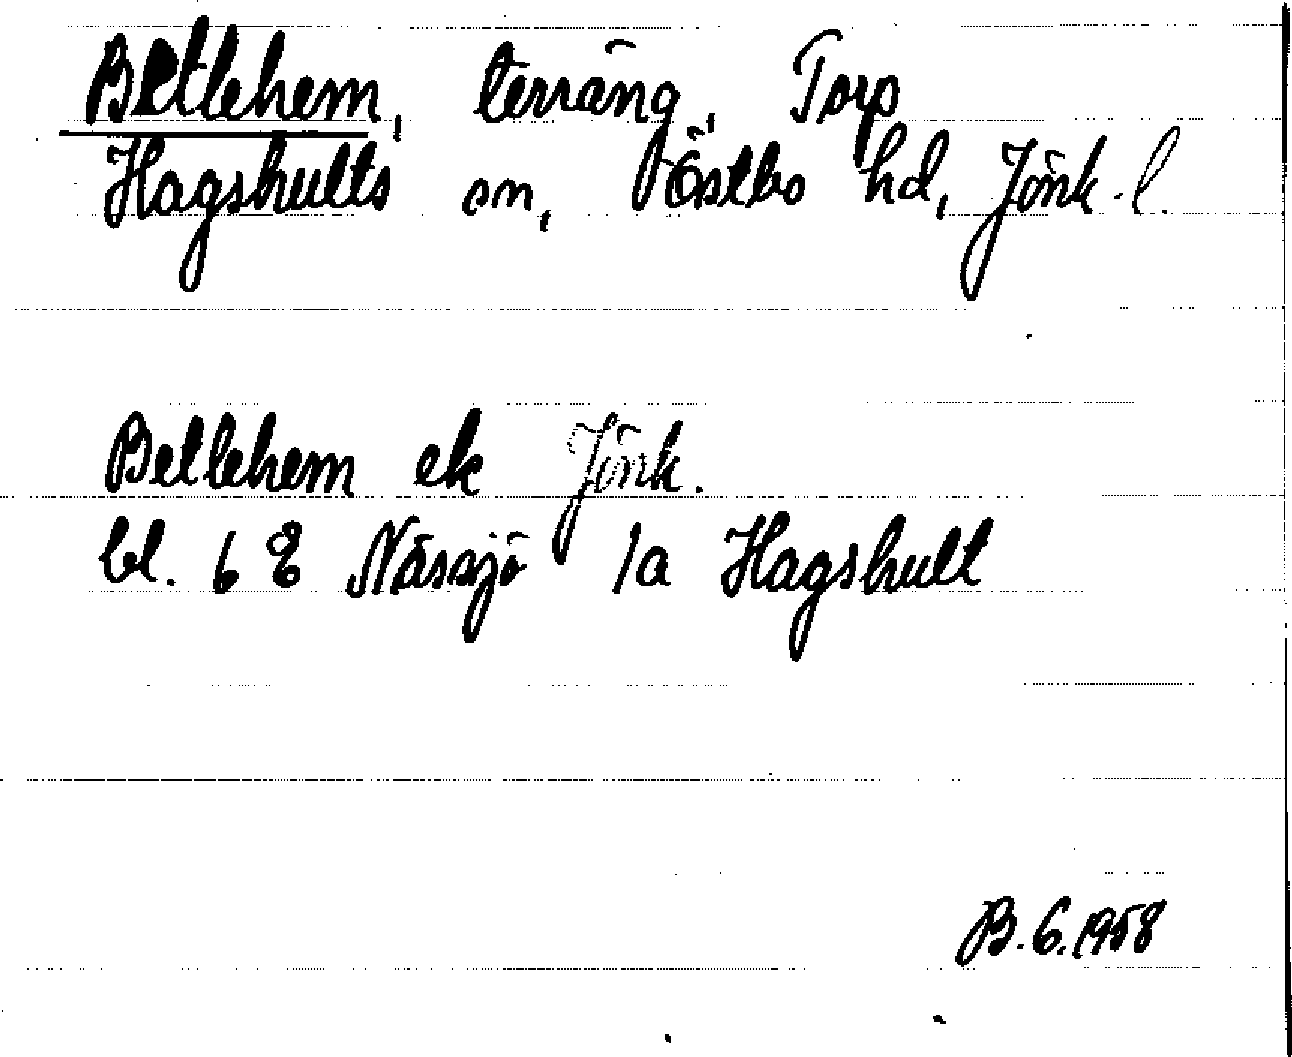 Betlehem, terräng, Torp
Hagshults sn, Östbo hd, Jönk. l.
Betlehem ek Jönk.
bl. 6 E Nässjö 1a Hagshult
B.G.1958